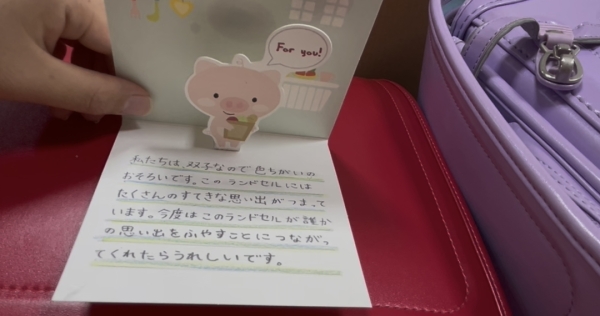 For you!
私たちは、双子なので色ちがいの
おそろいです。このランドセルには
たくさんのすてきな思い出がつまって
います。今度はこのランドセルが誰か
の思い出をふやすことにつながっ
てくれたらうれしいです。